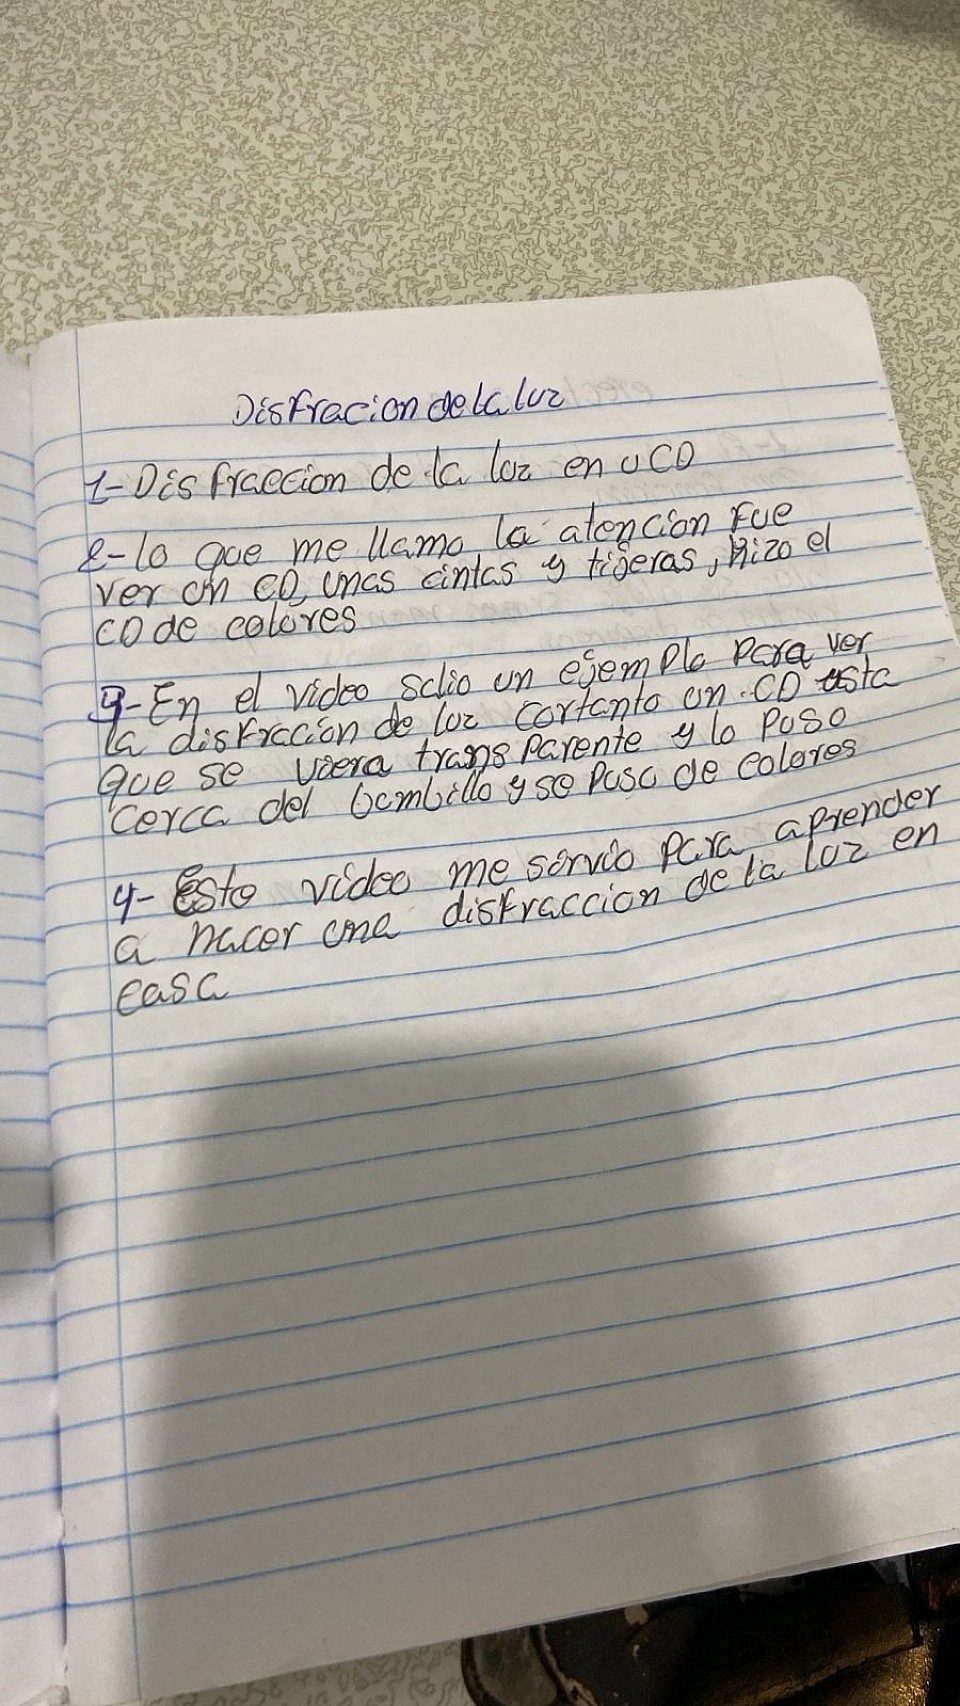 Disfracion de la luz
1-Disfraccion de la luz en u CD
2-lo que me llamo la atencion fue
ver un CD, unas cintas y tijeras, hizo el
CD de colores
3-En el video salio un ejemplo para ver
la disfraccion de luz cortanto un CD asta
que se viera transparente y lo puso
cerca del bombillo y se puso de colores
4-Este video me sirvio para aprender
a hacer una disfraccion de la luz en
casa